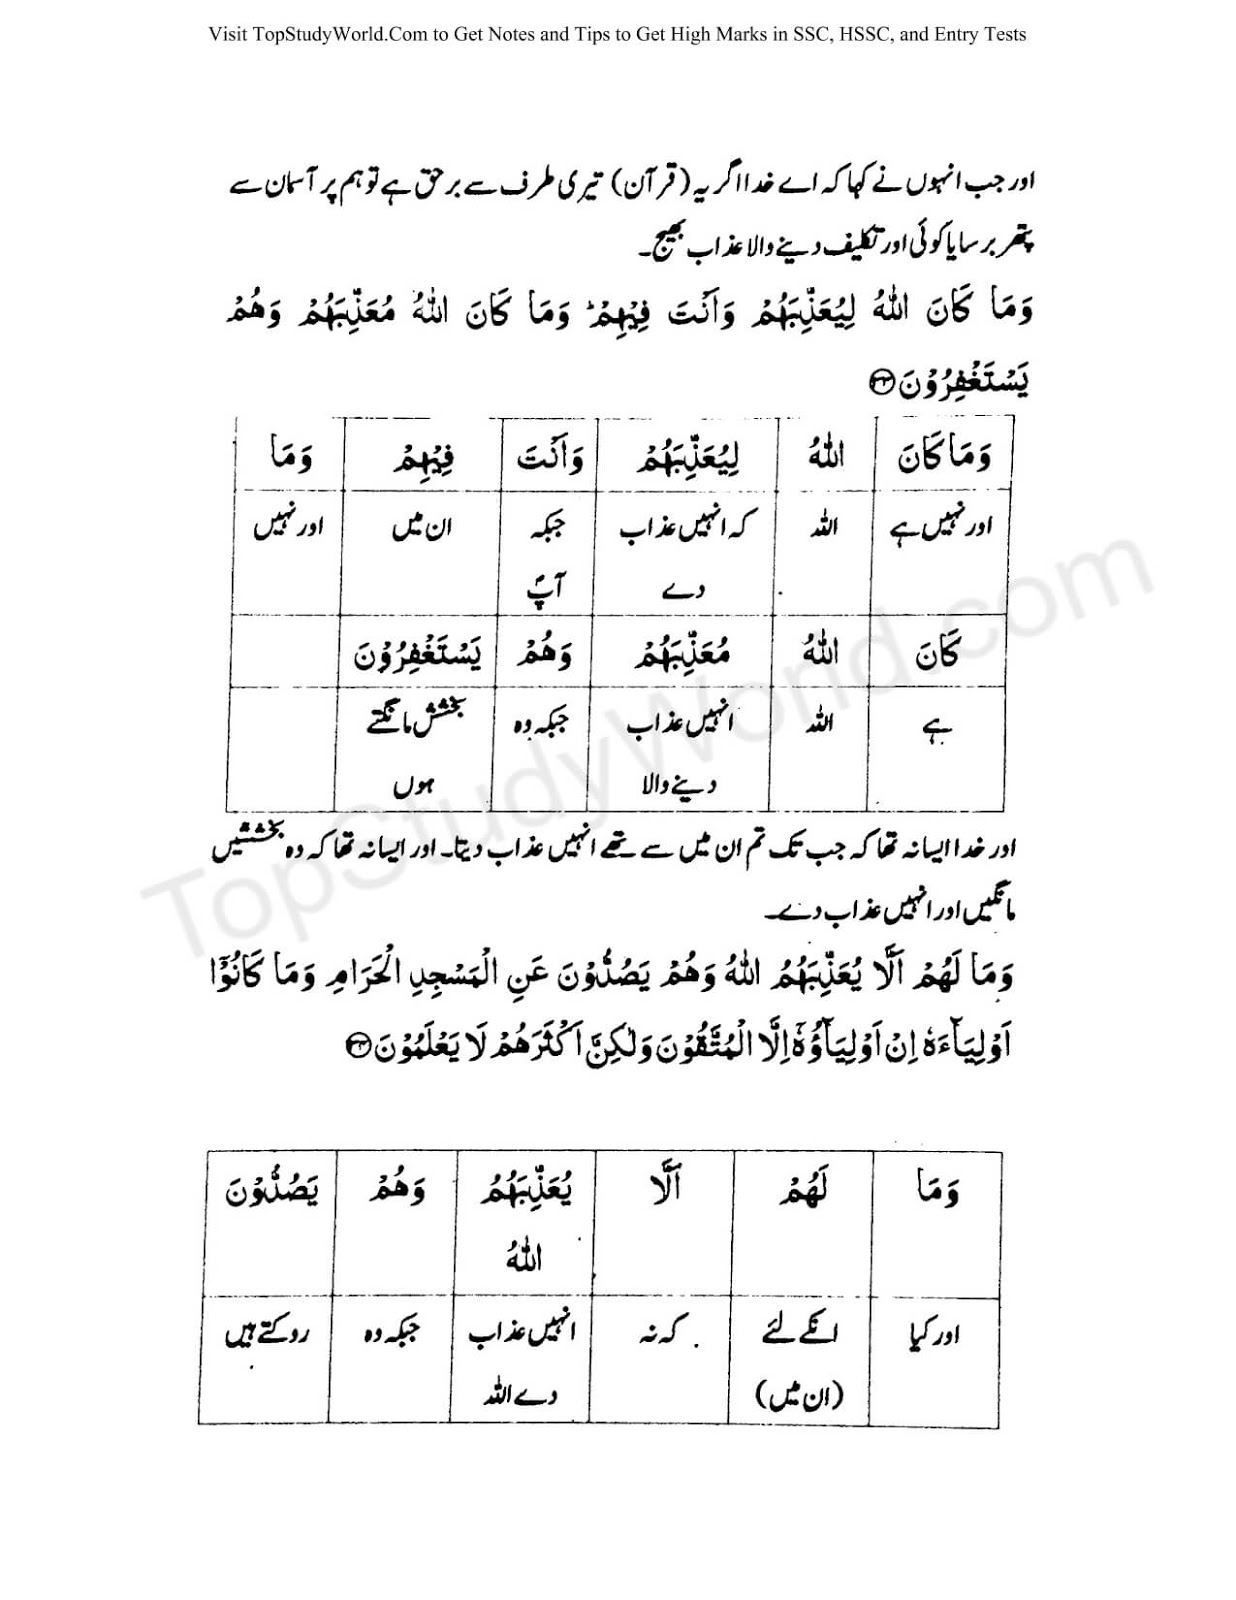 Visit TopStudyWorld.Com to Get Notes and Tips to Get High Marks in SSC, HSSC, and Entry Tests
اور جب انہوں نے کہا کہ اے خدا اگر یہ (قرآن) تیری طرف سے برحق ہے تو ہم پر آسمان سے
پتھر برسا یا کوئی اور تکلیف دینے والا عذاب بھیج۔
وَمَا كَانَ اللّٰهُ لِيُعَذِّبَهُمْ وَاَنْتَ فِيْهِمْ ؕ وَمَا كَانَ اللّٰهُ مُعَذِّبَهُمْ وَهُمْ
يَسْتَغْفِرُوْنَ ﴿۳۳﴾
وَمَا كَانَ اللّٰهُ لِيُعَذِّبَهُمْ وَاَنْتَ فِيْهِمْ وَمَا
اور نہیں ہے اللہ کہ انہیں عذاب جبکہ ان میں اور نہیں
دے آپؐ
كَانَ اللّٰهُ مُعَذِّبَهُمْ وَهُمْ يَسْتَغْفِرُوْنَ
ہے اللہ انہیں عذاب جبکہ وہ بخشش مانگتے
دینے والا ہوں
اور خدا ایسا نہ تھا کہ جب تک تم ان میں سے تھے انہیں عذاب دیتا۔ اور ایسا نہ تھا کہ وہ بخششیں
مانگیں اور انہیں عذاب دے۔
وَمَا لَهُمْ اَلَّا يُعَذِّبَهُمُ اللّٰهُ وَهُمْ يَصُدُّوْنَ عَنِ الْمَسْجِدِ الْحَرَامِ وَمَا كَانُوْۤا
اَوْلِيَآءَهٗ اِنْ اَوْلِيَآؤُهٗۤ اِلَّا الْمُتَّقُوْنَ وَلٰكِنَّ اَكْثَرَهُمْ لَا يَعْلَمُوْنَ ﴿۳۴﴾
وَمَا لَهُمْ اَلَّا يُعَذِّبَهُمُ وَهُمْ يَصُدُّوْنَ
اللّٰهُ
اور کیا انکے لئے کہ نہ انہیں عذاب جبکہ وہ روکتے ہیں
(ان میں) دے اللہ
TopStudyWorld.com